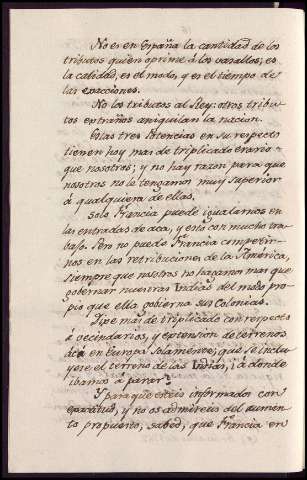 No es en España la cantidad de los
tributos quien oprime á los vasallos; es
la calidad, es el modo, y es el tiempo de
las exacciones.
No los tributos al Rey: otros tribu
tos extraños aniquilan la nacion.
Otras tres Potencias en su respecto
tienen hoy mas de triplicado erario
que nosotros; y no hay razon para que
nosotros no le tengamos muy superior
á qualquiera de ellas.
Solo Francia puede igualarnos en
las entradas de acá, y esto con mucho tra
bajo. Pero no puede Francia competir
nos en las retribuciones de la América,
siempre que nosotros no hagamos mas que
gobernar nuestras Indias del modo pro
pio que ella gobierna sus Colonias.
Dixe mas de triplicado con respecto
á vecindarios, y extension de terrenos
acá en Europa solamente; que si se inclu
yese el terreno de las Indias, ¿á donde
ibamos á parar?
Y para que esteis informado con
exactitud, y no os admireis del aumen
to propuesto, sabed, que Francia en